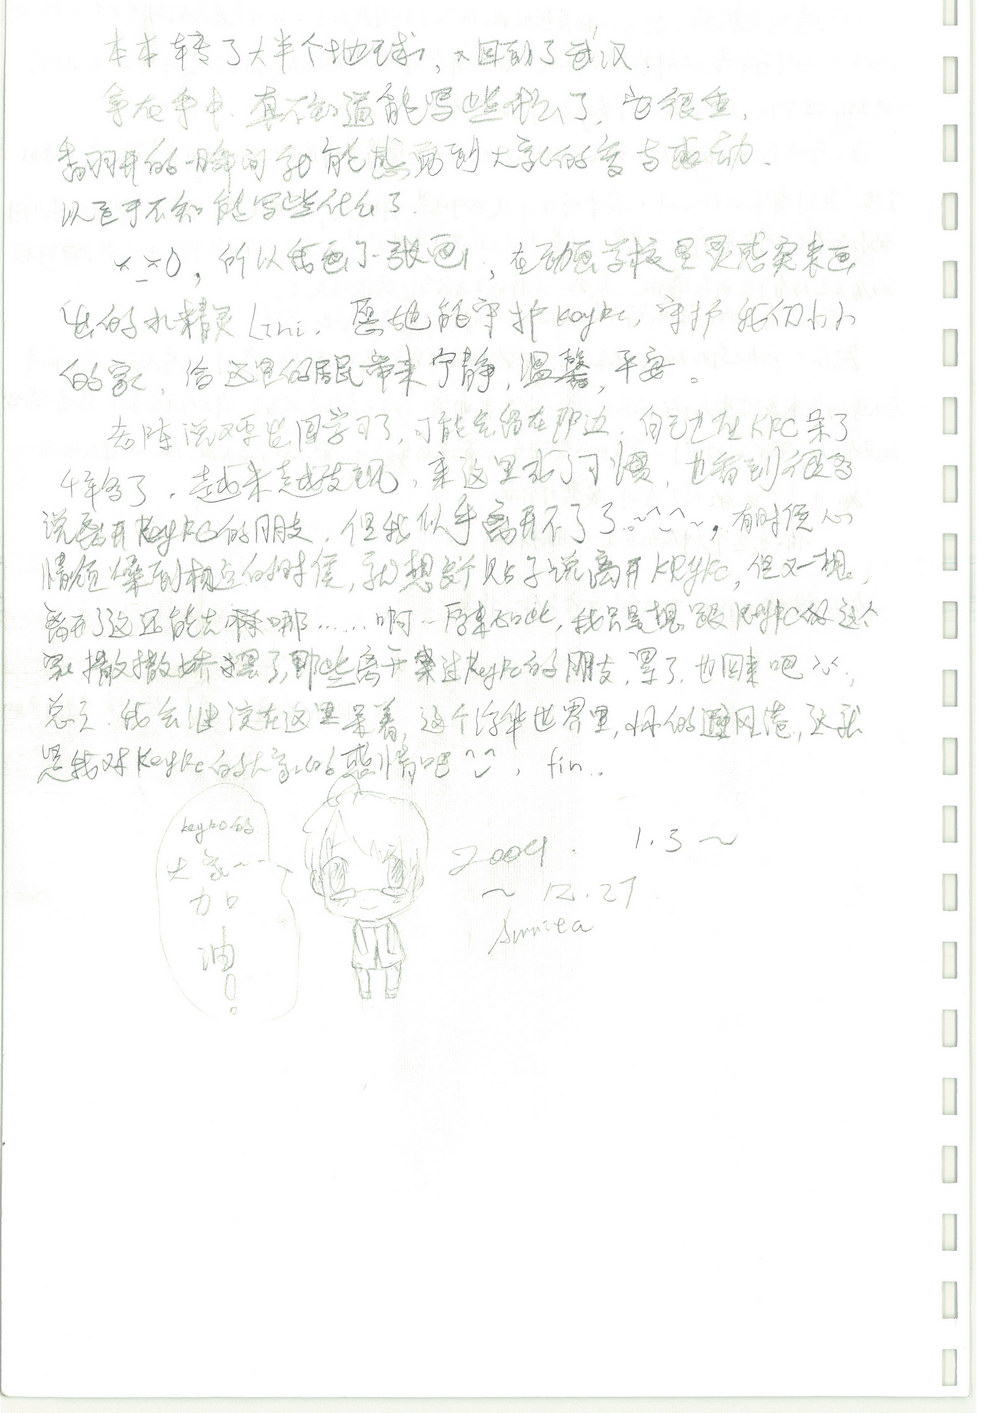 本本转了大半个地球，又回到了武汉.
拿在手中.真不知道能写些什么了，它很重，
翻开的一瞬间就能感觉到大家的爱与感动.
以至于不知能写些什么了.
×_×0，所以会画了一张画，在动画学校里灵感突来画
出的水精灵Lini. 愿她能守护KeyFC，守护我们小小
的家，给这里的居民带来宁静，温馨，平安。
说又要出国学习了，可能会留在那边.自己也在KFC呆了
年多了.越来越发现，来这里成了习惯，也看到很多
说离开KeyFC的朋友.但我似乎离开不了了.~^_^~，有时候心
情烦 到极点的时候，就想发个贴子说离开KeyFC，但又一想，
离开了这还能去哪……啊…原来如此，我只是想跟KeyFC的这个
家撒撒娇罢了，那些离开来过KeyFC的朋友，累了.也回来吧^^，
总之.我会继续在这里呆着，这个浮华世界里， 的避风港，这就
是我对KeyFC的大家的感情吧^_^，fin..
keyfc的
大家~~
加
油
！
2009. 1.3～
～12.27